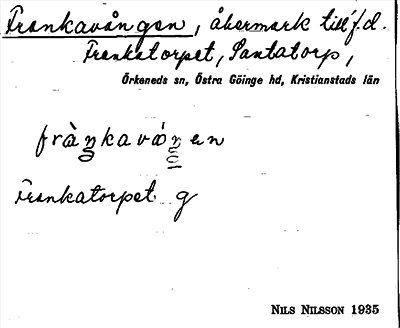 Frankavången, åkermark till f.d.
Frankatorpet, Santatorp,
Örkeneds sn, Östra Göinge hd, Kristianstads län
fràŋkavǻŋen
Frankatorpet g
NILS NILSSON 1935